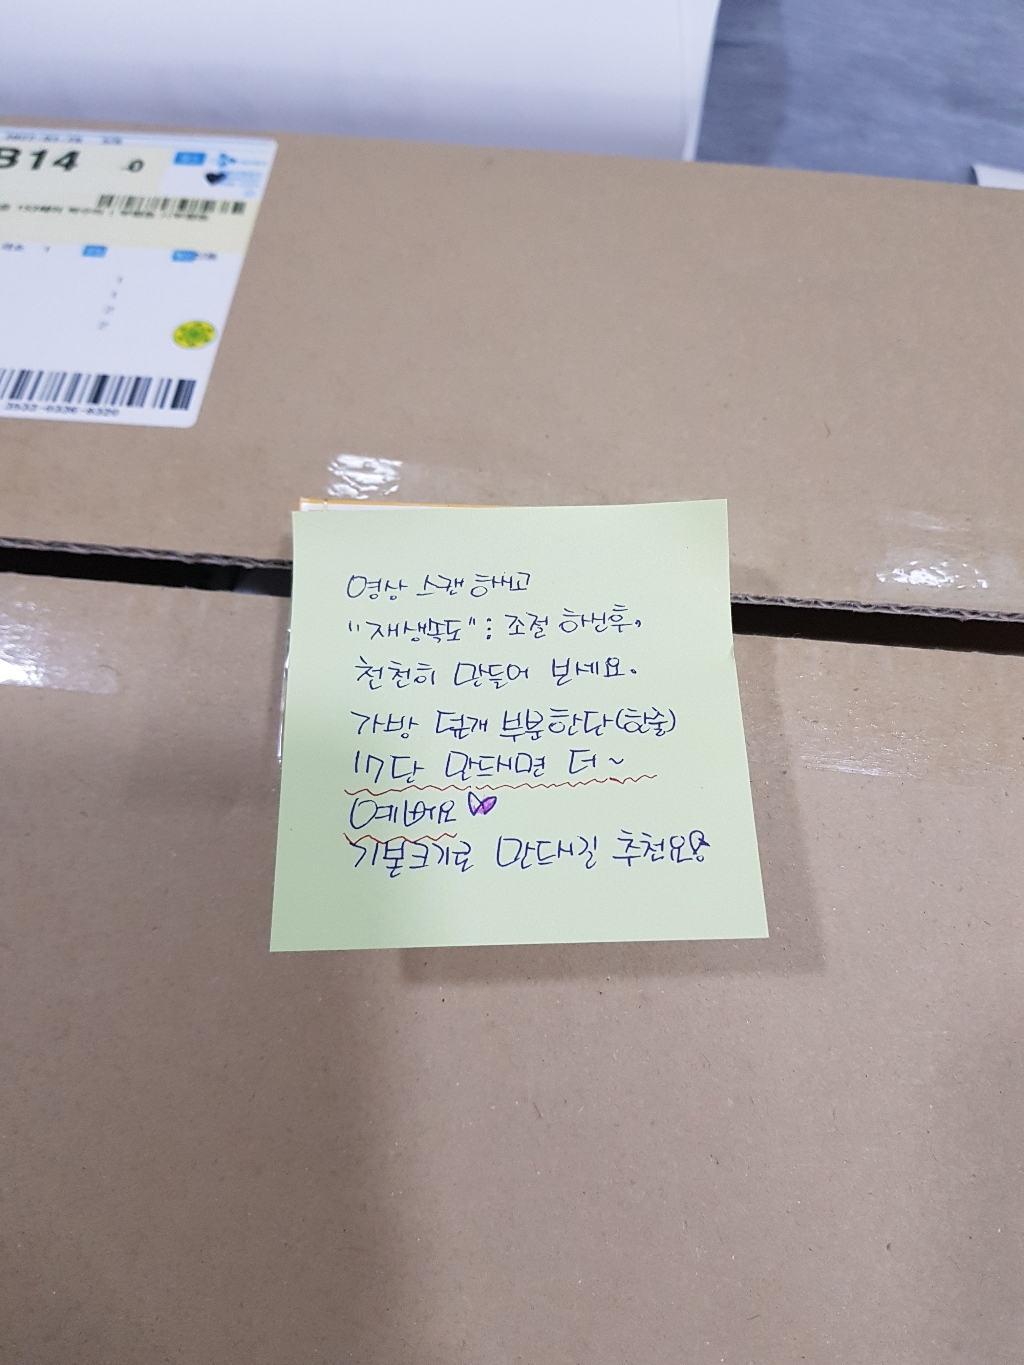 814 -0
3532-0336-8320
영상 스캔 하시고
"재생속도": 조절 하신후,
천천히 만들어 보세요.
가방 덮개 부분한단(한줄)
17단 만드시면 더~
예뻐요
기본크기로 만드시길 추천요